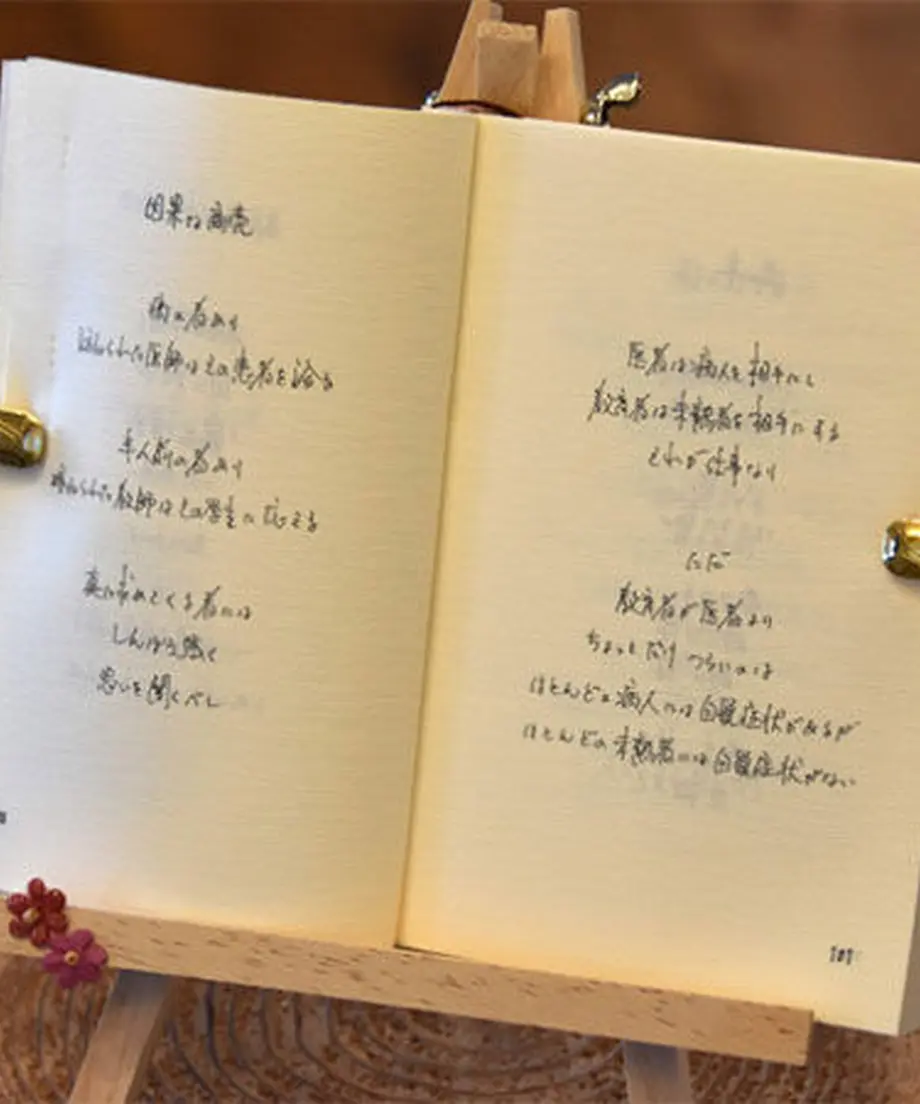 因果な商売
病の者あり
訪ねられた医師はその患者を治す
半人前の者あり
尋ねられた教師はその学生に応える
真に求めてくる者には
しんぼう強く
思いを聞くべし
医者は病人を相手にし
教育者は未熟者を相手にする
それが仕事なり
ただ
教育者が医者より
ちょっとだけ つらいのは
ほとんどの病人には自覚症状があるが
ほとんどの未熟者には自覚症状がない
101